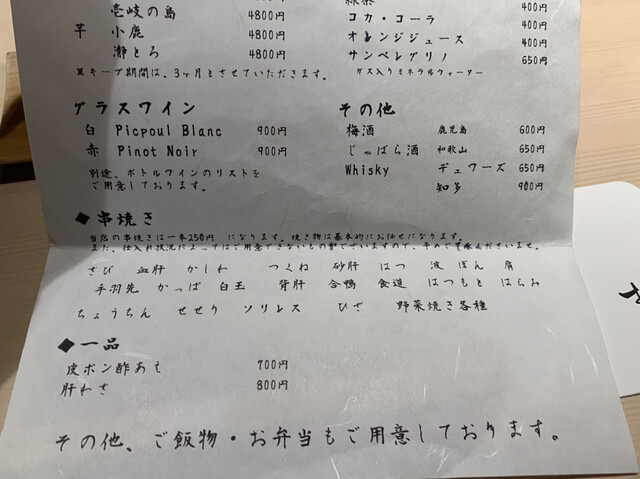 壱岐の島 4800円
芋 小鹿 4800円
瀞とろ 4800円
※キープ期間は、3ヶ月とさせていただきます。
400円
コカ・コーラ 400円
オレンジジュース 400円
サンペレグリノ 650円
ガス入りミネラルウォーター
グラスワイン
白 Picpoul Blanc 900円
赤 Pinot Noir 900円
別途、ボトルワインのリストを
ご用意しております。
その他
梅酒 鹿児島 600円
じゃばら酒 和歌山 650円
Whisky デュワーズ 650円
知多 900円
◆串焼き
当店の串焼きは一本250円 になります。焼き物は基本的にお任せになります。
また、仕入れ状況によってはご用意できないもの御座いますので、その際はご了承くださいませ。
さび 血肝 かしわ つくね 砂肝 はつ 波 ぼん 肩
手羽先 かっぱ 白玉 背肝 合鴨 食道 はつもと はらみ
ちょうちん せせり ソリレス ひざ 野菜焼き各種
◆一品
皮ポン酢あえ 700円
肝わさ 800円
その他、ご飯物・お弁当もご用意しております。